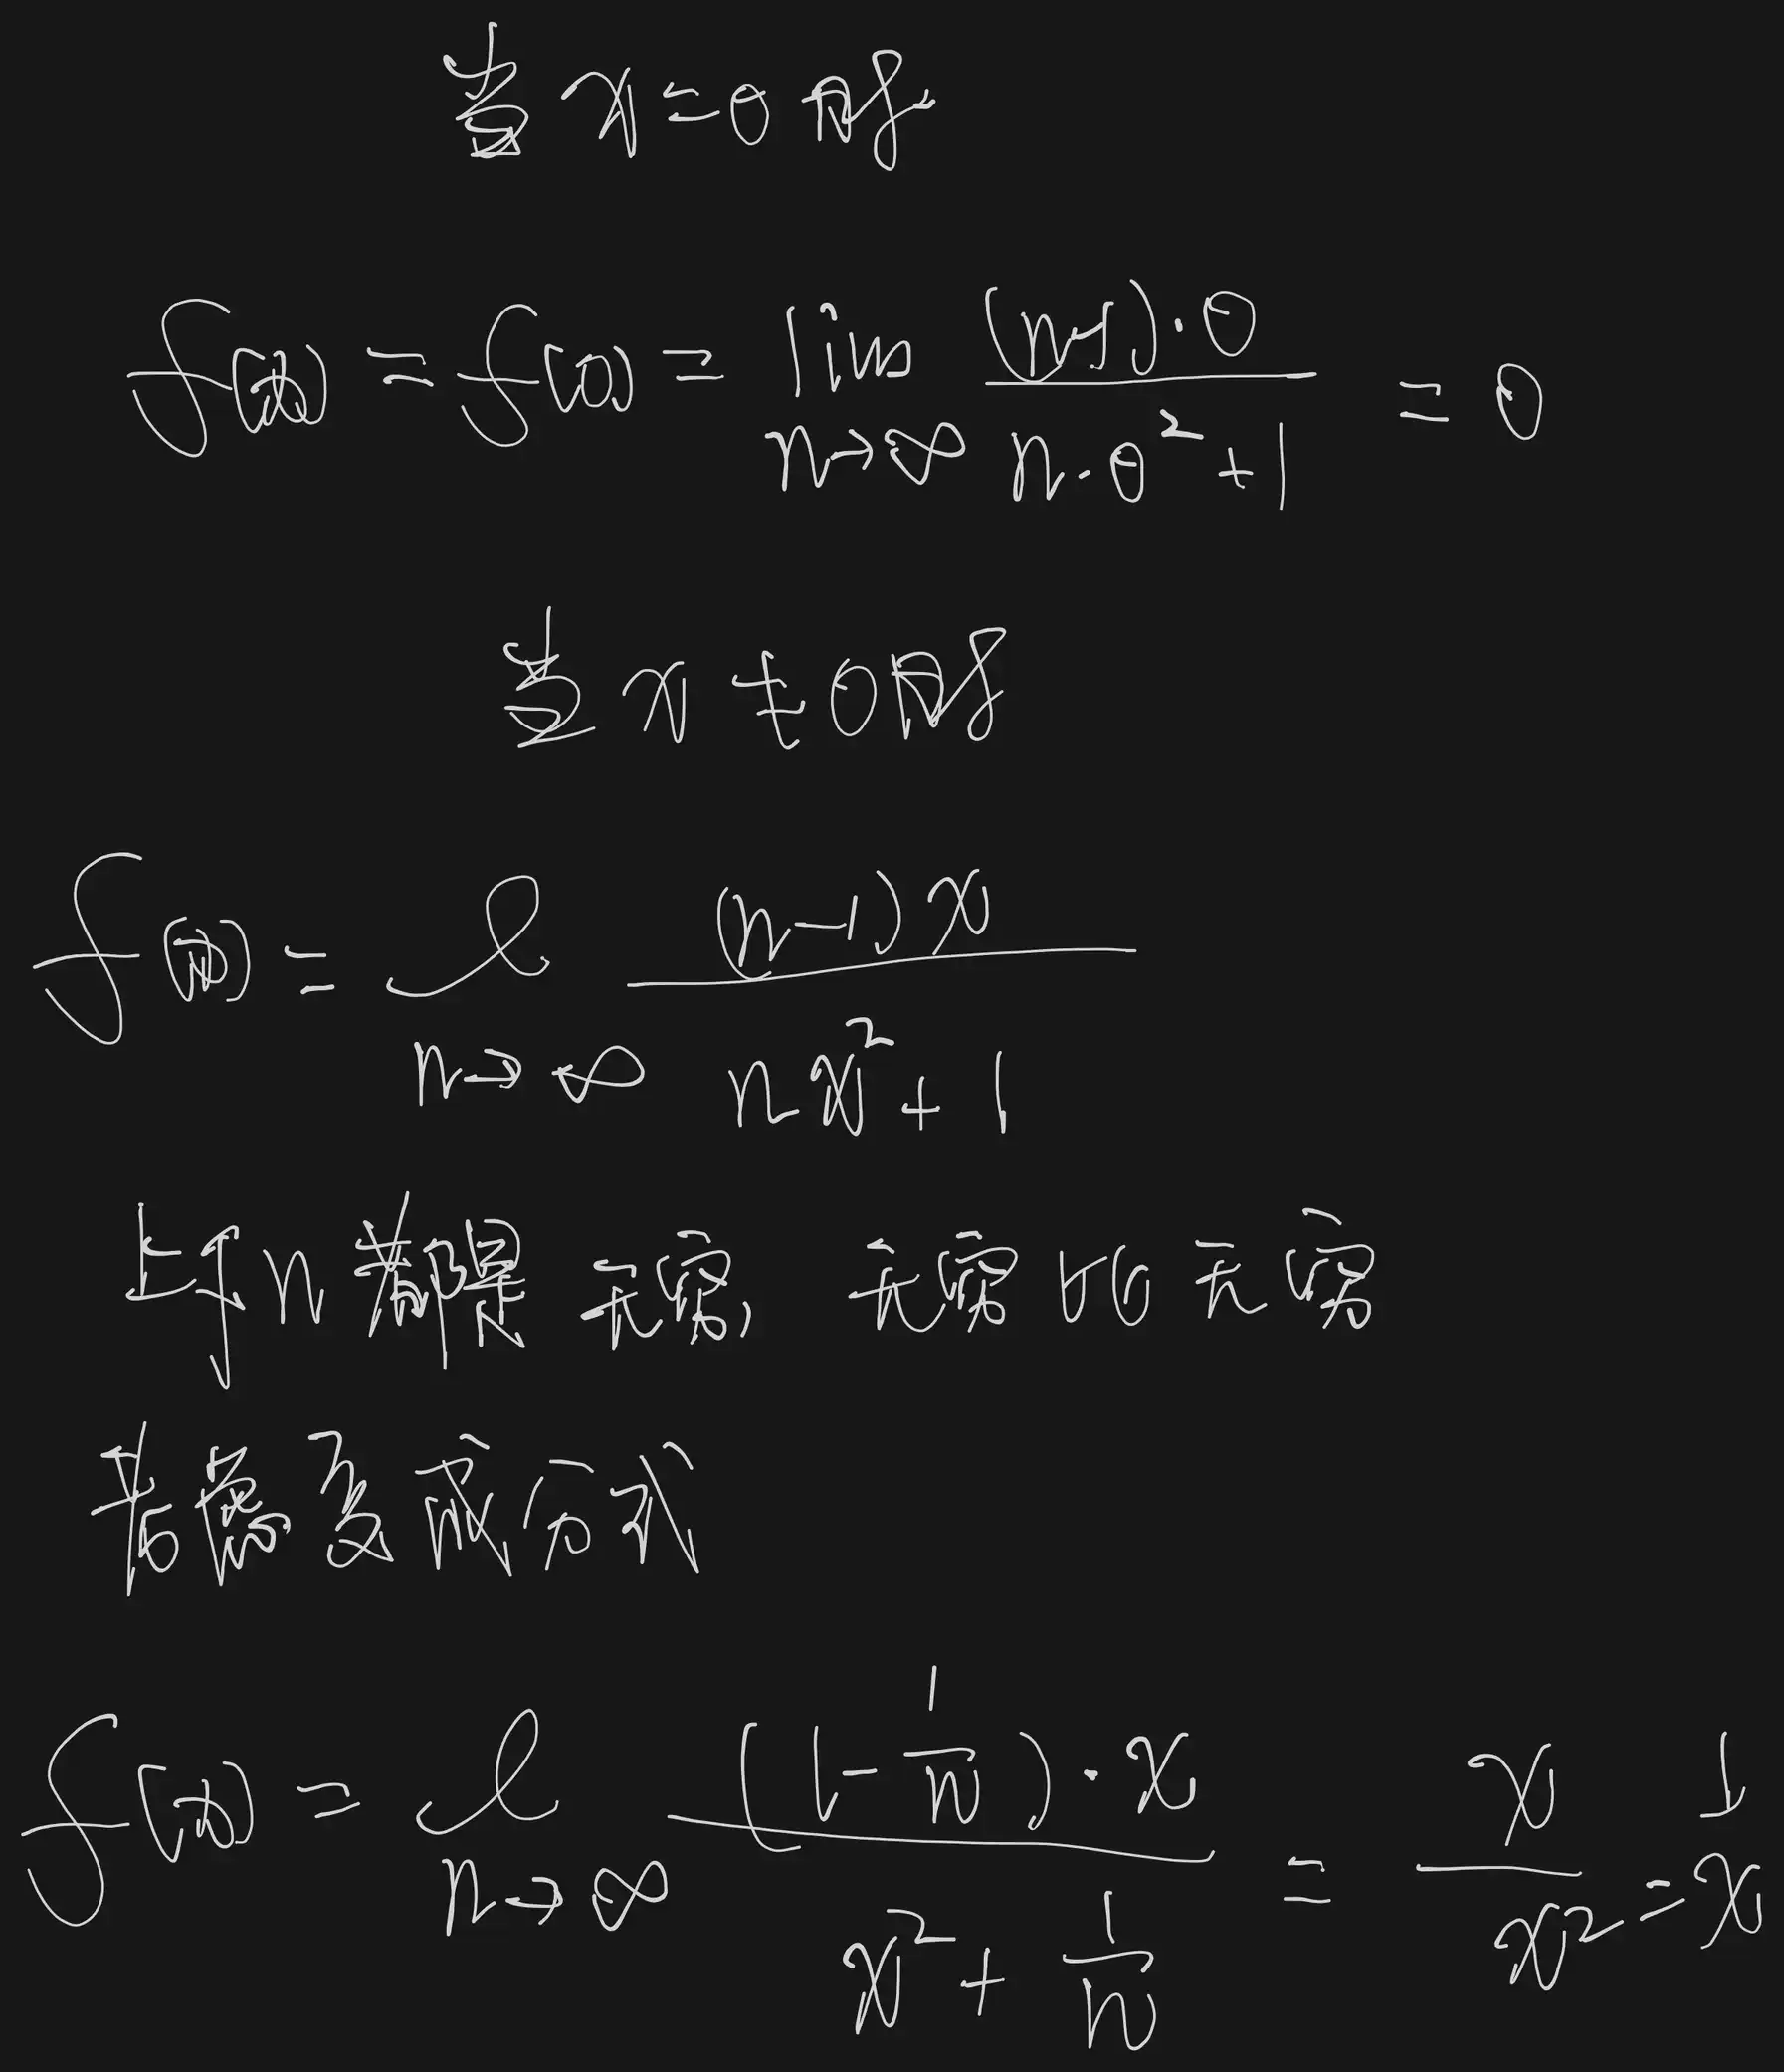 当 x=0 时
f(x) = f(0) = lim n→∞ (n-1)·0 / n·0²+1 = 0
当 x ≠ 0时
f(x) = l n→∞ (n-1)x / nx²+1
上下n都是无穷, 无穷比无穷
考虑变成分式
f(x) = l n→∞ (1-1/n)·x / x²+1/n = x/x² = 1/x